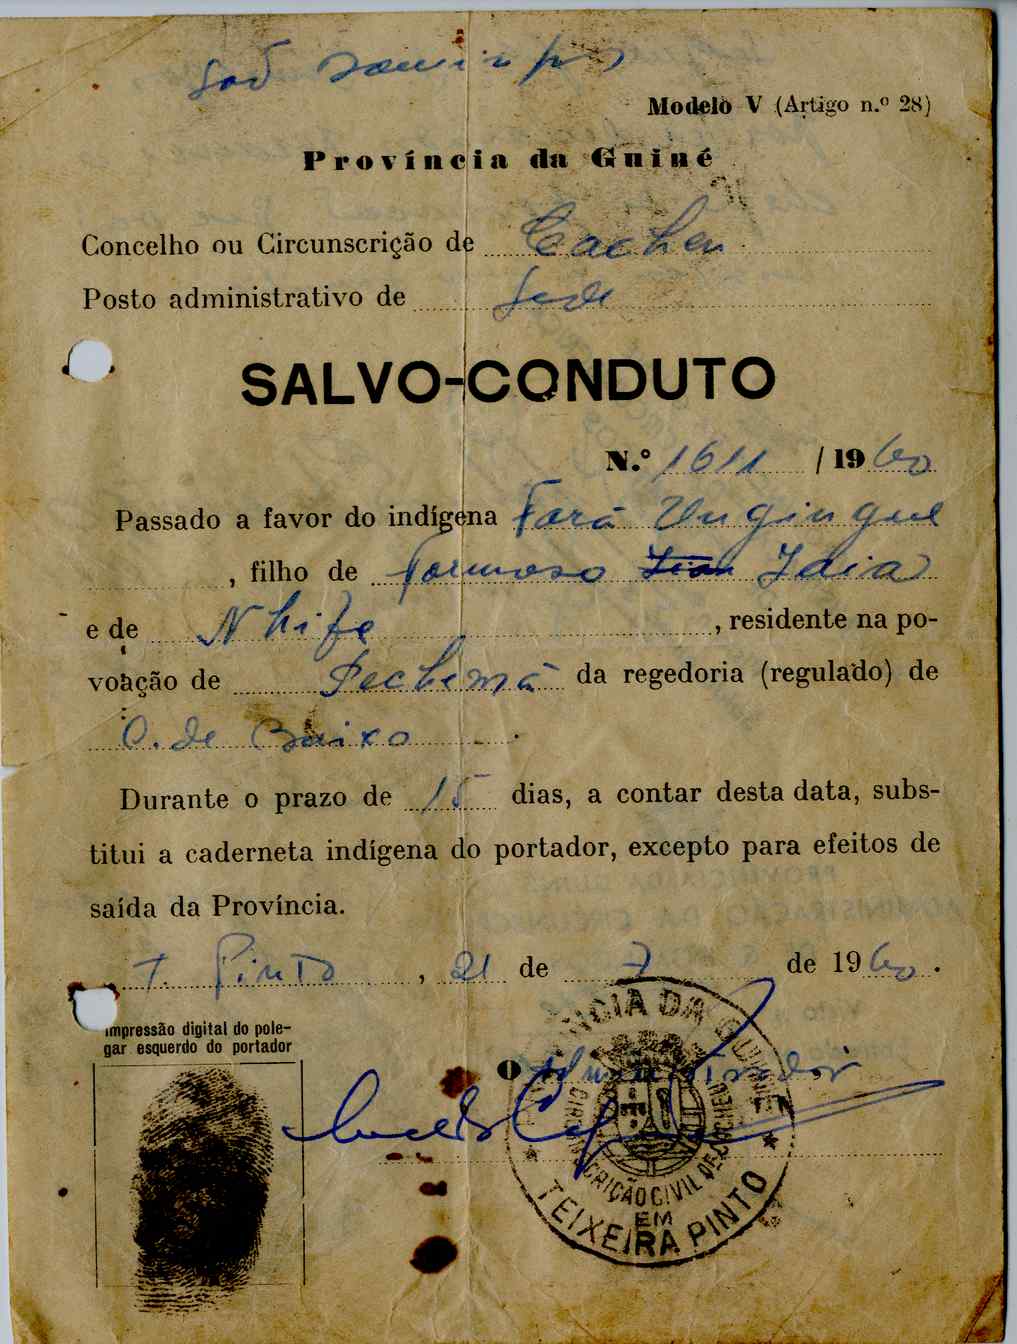 São Domingos
Modelo V (Artigo n.º 28)
Província da Guiné
Concelho ou Circunscrição de Cacheu
Posto administrativo de Sede
SALVO-CONDUTO
N.º 1611 / 1960
Passado a favor do indígena Fará Ungingue
, filho de Formoso Idia
e de Nhife , residente na po-
voação de Pechemã da regedoria (regulado) de
C. de Baixo
Durante o prazo de 15 dias, a contar desta data, subs-
titui a caderneta indígena do portador, excepto para efeitos de
saída da Província.
T. Pinto , 21 de 7 de 1960.
Impressão digital do pole-
gar esquerdo do portador
O Administrador
PROVÍNCIA DA GUINÉ
CIRCUNSCRIÇÃO CIVIL DE CACHEU
EM
TEIXEIRA PINTO